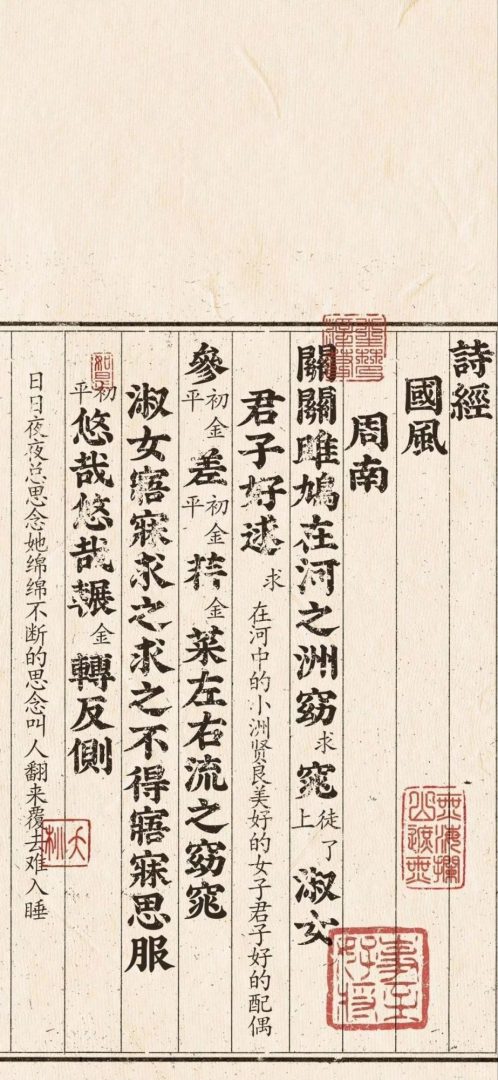 詩經
國風
周南
關關雎鳩在河之洲窈求窕徒了上淑女
君子好逑求在河中的小洲贤良美好的女子君子好的配偶
參初金平差初金平荇金菜左右流之窈窕
淑女寤寐求之求之不得寤寐思服
初平悠哉悠哉輾金轉反側
日日夜夜总思念她绵绵不断的思念叫人翻来覆去难入睡
如是